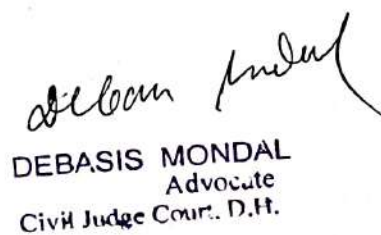 Debasis Mondal
DEBASIS MONDAL
Advocate
Civil Judge Court. D.H.